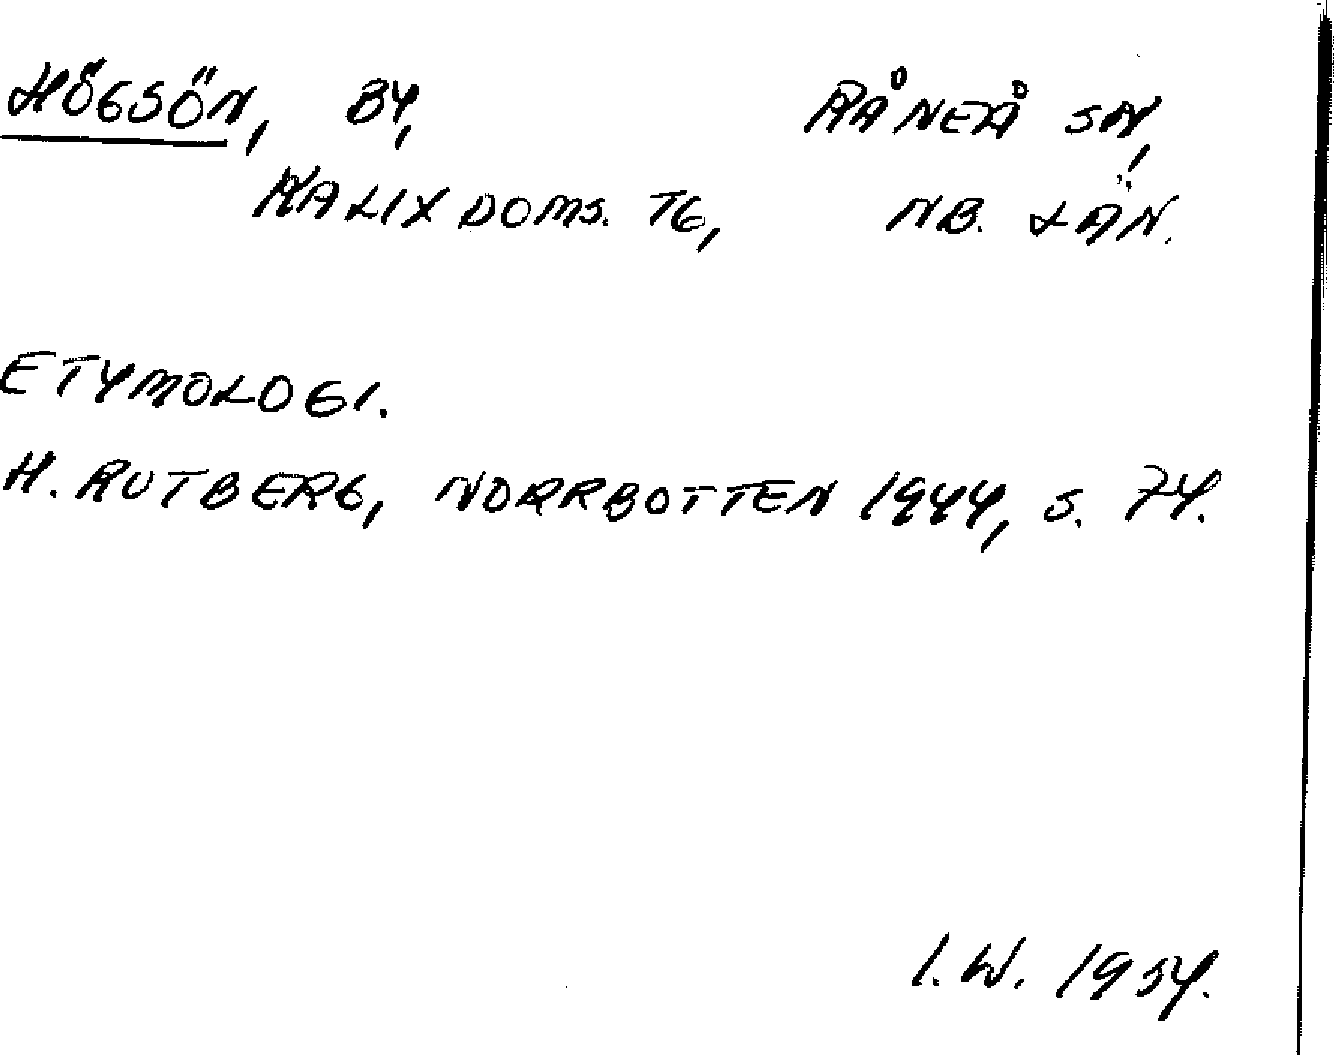 HÖGSÖN, BY, RÅNEÅ SN,
KALIX DOMS. TG, NB. LÄN.
ETYMOLOGI.
H. RUTBERG, NORRBOTTEN 1944, S. 74.
I. W. 1954.